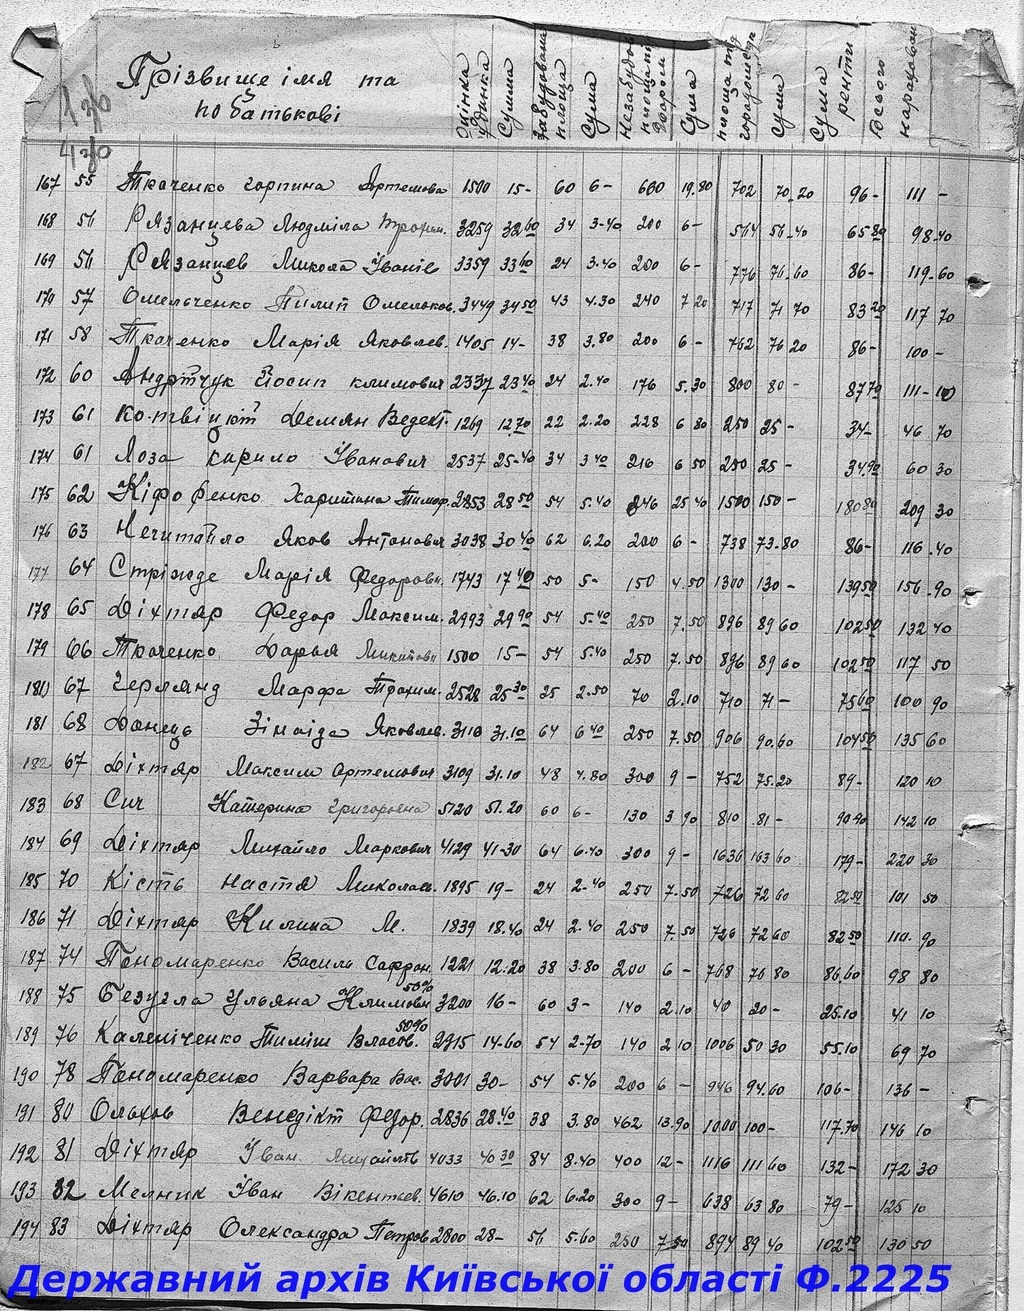 Прізвище імя та по батькові Оцінка будинка Сумма забудована площа Сума Незабудов площа двором Сума площа під городом Сума Сума ренти Всього нараховано
167 55 Ткаченко горпина Артемова 1500 15- 60 6- 660 19.80 702 70.20 96- 111 -
168 56 Рязанцева Людміла Трохим. 3259 32 60 34 3-40 200 6- 564 56.40 65 80 98.40
169 56 Рязанцев Микола Іванів 3359 33 60 24 3.40 200 6- 776 76.60 86- 119.60
170 57 Омельченко Пилип Омельков. 3449 34 50 43 4.30 240 7 20 717 71 70 83 20 117 70
171 58 Ткаченко Марія Яковлев. 1405 14- 38 3.80 200 6- 762 76 20 86- 100 -
172 60 Андрійчук Йосип климович 2337 23 40 24 2.40 176 5.30 800 80 - 87 70 111-10
173 61 Демян Ведект. 1269 12.70 22 2-20 228 6 80 250 25- 34- 46 70
174 61 Лоза кирило Іванович 2537 25-40 34 3 40 216 6 50 250 25- 34.90 60 30
175 62 Харитина Тимоф. 2853 28 50 54 5.40 846 25 40 1500 150- 180 80 209 30
176 63 Нечитайло Яков Антонович 3038 30 40 62 6.20 200 6- 738 73.80 86- 116.40
177 64 Марія Федоровн. 1743 17 40 50 5- 150 4.50 1300 130- 139 50 156.90
178 65 Діхтяр Федор Максим. 2993 29 90 54 5.40 250 7.50 896 89 60 102 50 132 40
179 66 Ткаченко Дарья Микитовн 1500 15- 54 5.40 250 7.50 896 89 60 102 50 117 50
180 67 Герлянд Марфа Трохим. 2528 25 30 25 2.50 70 2.10 710 71- 75 60 100 90
181 68 Донець Зінаіда Яковлев. 3110 31.10 64 6 40 250 7.50 906 90.60 104 50 135 60
182 67 Діхтяр Максим Артемович 3109 31.10 48 4.80 300 9- 752 75.20 89- 120 10
183 68 Сич Катерина Григоровна 5120 51.20 60 6- 130 3 90 810 81- 90 90 142 10
184 69 Діхтяр Михайло Маркович 4129 41-30 64 6.40 300 9- 1636 163 60 179- 220 30
185 70 Кість Настя Миколаєв. 1895 19- 24 2-40 250 7.50 726 72 60 82 50 101 50
186 71 Діхтяр Килина М. 1839 18.40 24 2.40 250 7.50 726 72 60 82 50 110.90
187 74 Пономаренко Василь Сафрон. 1221 12.20 38 3.80 200 6- 768 76 80 86.60 98 80
188 75 Безугла Ульяна Климовн 50% 3200 16- 60 3- 140 2.10 40 20- 25.10 41 10
189 76 Каленіченко Тиміш Власов. 50% 2915 14-60 54 2-70 140 2 10 1006 50 30 55.10 69 70
190 78 Пономаренко Варвара Вас. 3001 30- 54 5.40 200 6 - 946 94.60 106- 136-
191 80 Ольхов Венедікт Федор. 2836 28.40 38 3.80 462 13.90 1000 100- 117.70 146 10
192 81 Діхтяр Іван Михайлів 4033 40 30 84 8.40 400 12- 1116 111 60 132- 172 30
193 82 Мелник Іван Вікентієв. 4610 46.10 62 6.20 300 9- 638 63 80 79- 125 10
194 83 Діхтяр Олександра Петров 2800 28- 56 5.60 250 7.50 894 89.40 102 50 130 50
Державний архів Київської області Ф.2225